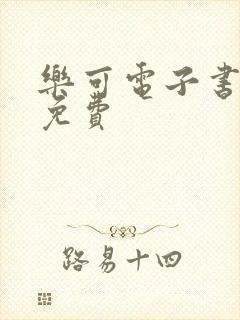 樂可電子書
免費
路易十四